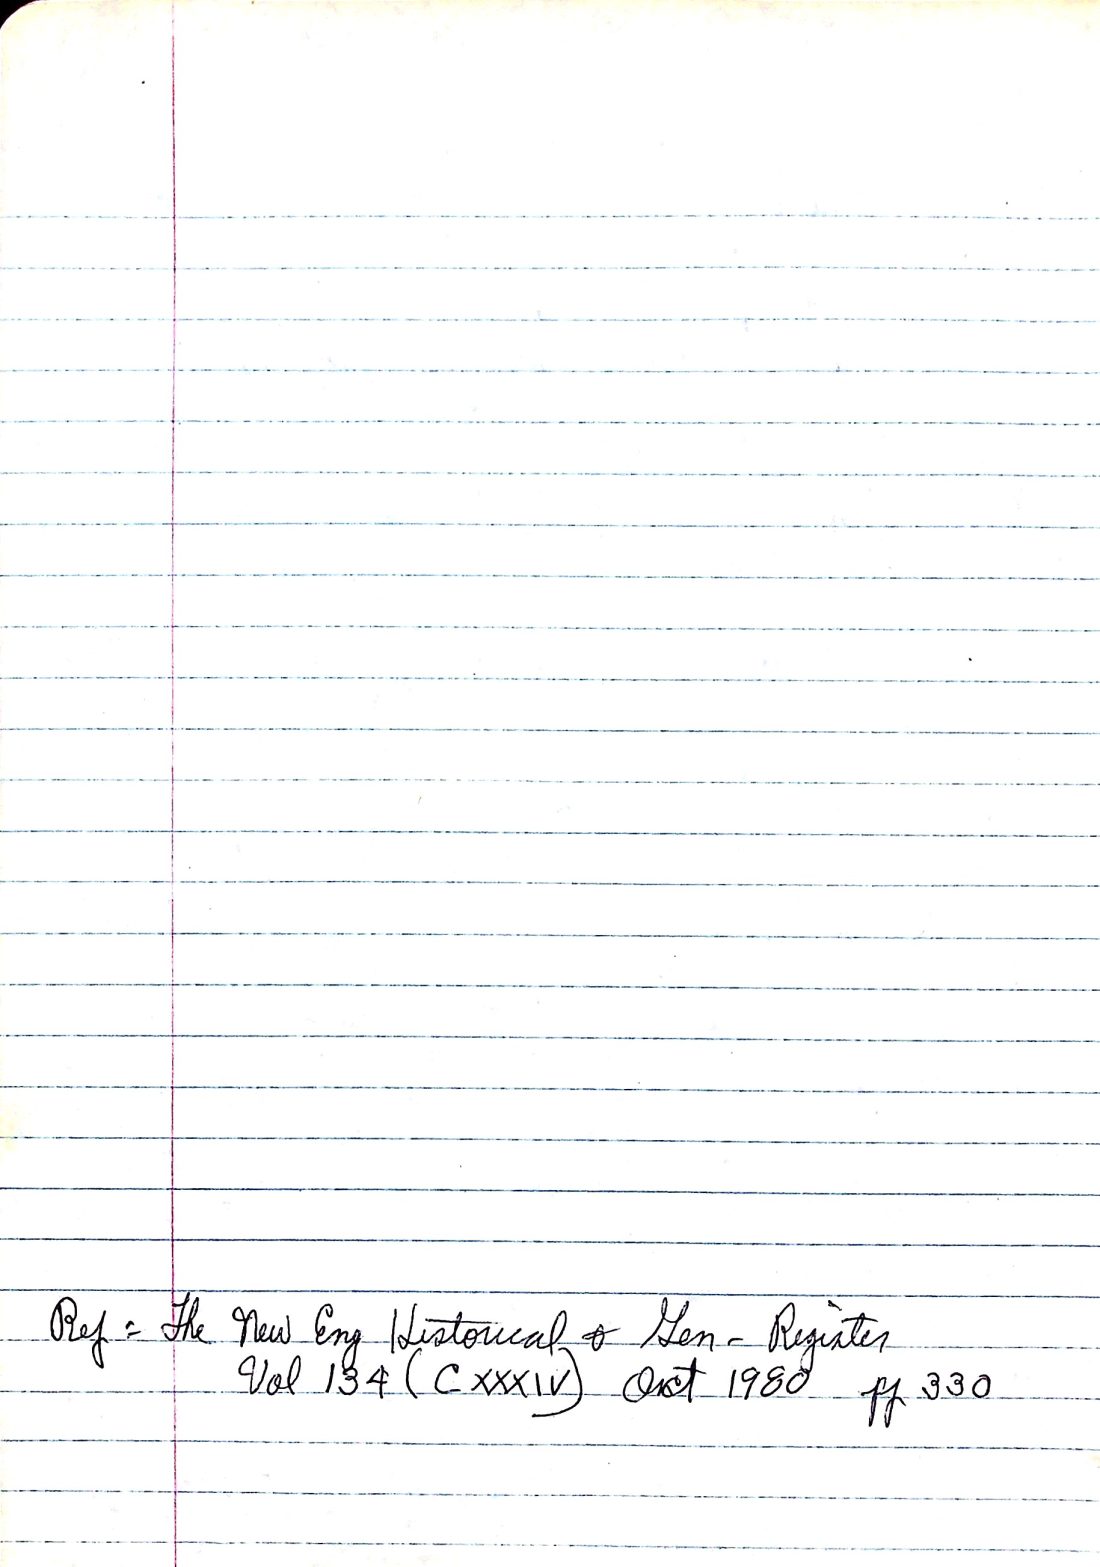 Ref = The New Eng Historical & Gen - Register
Vol 134 (CXXXIV) Oct 1980 pp 330